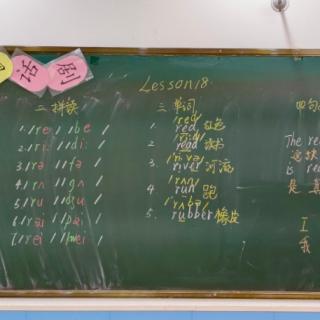 话剧
Lesson18.
二拼读
1. /re/ /be/
2. /ri:/ /di:/
3. /rə/ /fə/
4. /rʌ/ /gʌ/
5. /ru/
6. /rai/ /pai/
7. /rei/ /mei/
三单词
/red/
1. red 红色
/ri:d/
2. read 读书
3. river 河流
/rʌn/
4. run 跑
/'rʌbə/
5. rubber 橡皮
四句
The re
这块
is re
是
I
我